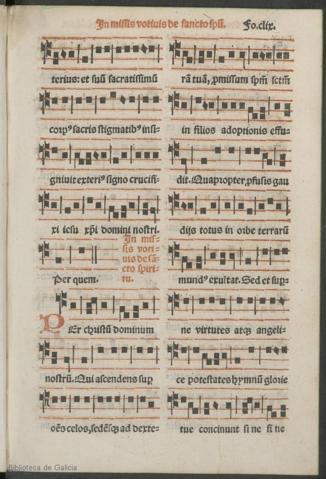 In missis votivis de sancto spũ. Fo.clix.
terius: et suũ sacratissimũ
corpꝰ sacris stigmatibꝰ insi-
gniuit exteriꝰ signo crucifi-
xi iesu xp̃i domini nostri.
Per quem.
In mis-
sis voti-
vis de sã-
cto spiri-
tu.
PEr christũ dominum
nostrũ. Qui ascendens sup
oẽs celos, sedẽsq; ad dexte-
rã tuã, ꝓmissum spm̃ sctm̃
in filios adoptionis effu-
dit. Quapropter, ꝓfusis gau
dijs totus in orbe terrarũ
mundꝰ exultat. Sed et sup-
ne virtutes atq; angeli-
ce potestates hymnũ glorie
tue concinunt si ne si ne
Biblioteca de Galicia